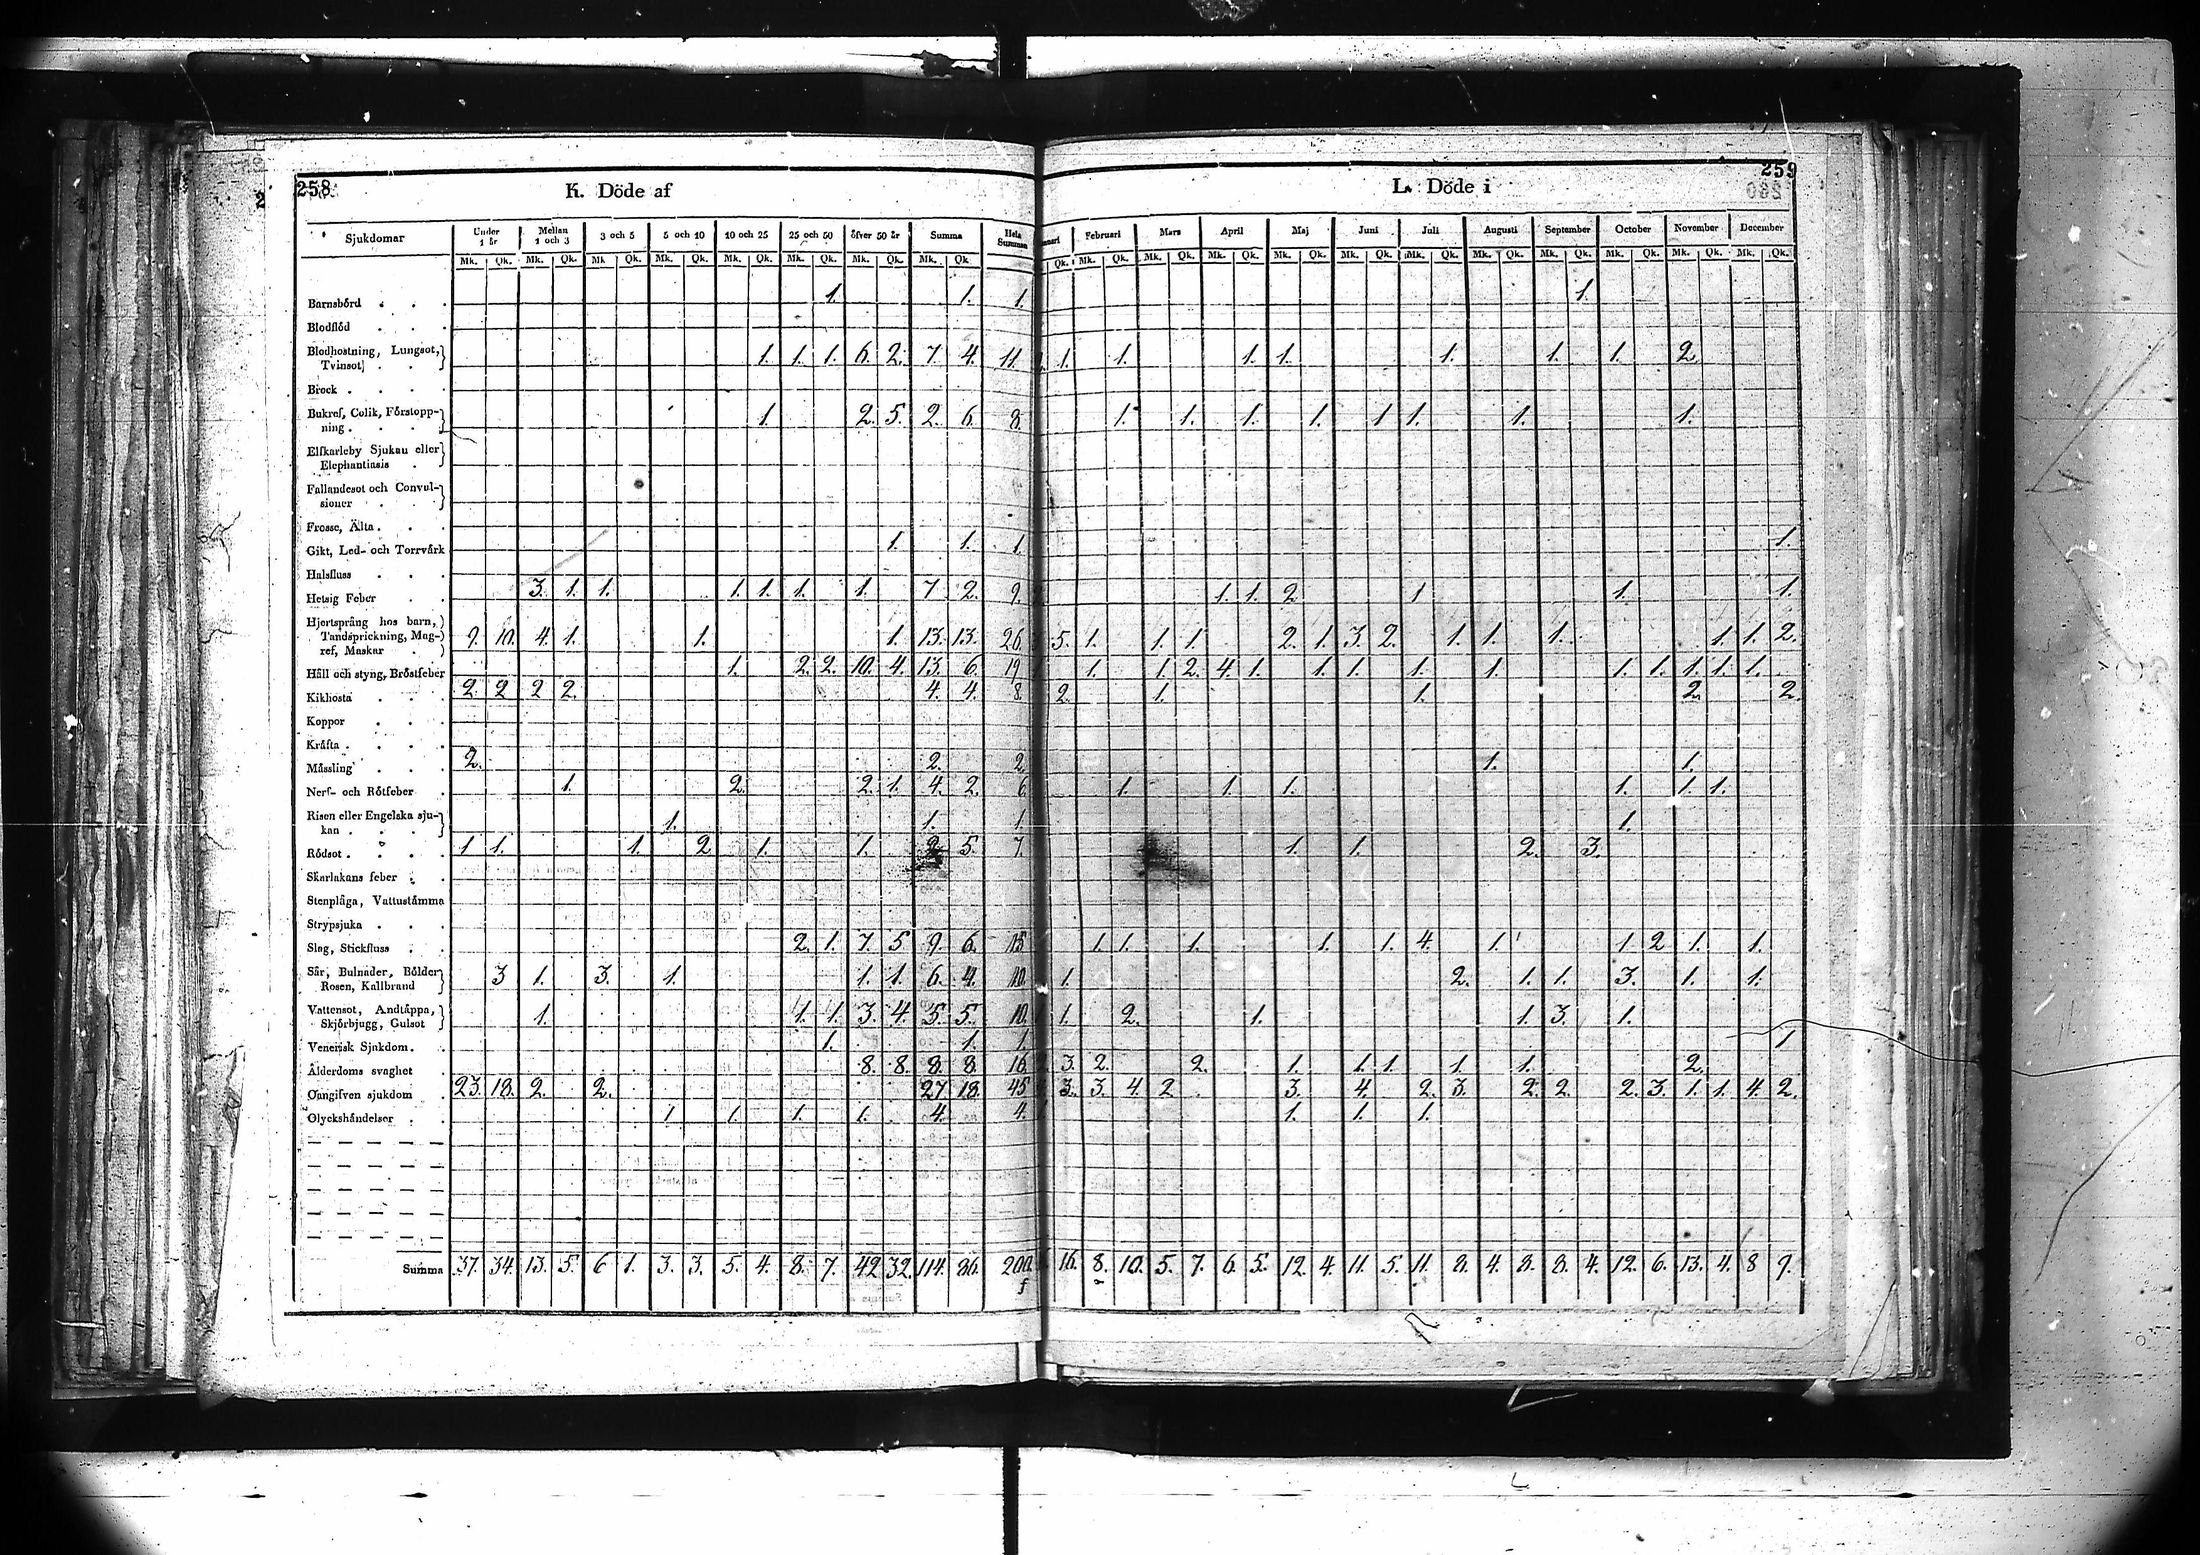 258. K. Döde af L. Döde i 259
Sjukdomar Under 1 år Mellan 1 och 3 3 och 5 5 och 10 10 och 25 25 och 50 öfver 50 år Summa Hela Summan Februari Mars April Maj Juni Juli Augusti September October November December
Mk. Qk. Mk. Qk. Mk Qk. Mk. Qk. Mk. Qk. Mk. Qk. Mk. Qk. Mk. Qk Qk. Mk. Qk. Mk. Qk. Mk. Qk. Mk. Qk. Mk. Qk. Mk. Qk. Mk. Qk. Mk. Qk. Mk. Qk. Mk. Qk. Mk. Qk.
Barnsbörd . . . 1. 1. 1. 1.
Blodflöd . . .
Blodhostning, Lungsot,
Tvinsot . . 1. 1. 1. 6. 2. 7. 4. 11. 1. 1. 1. 1. 1. 1. 1. 2
Brock . . .
Bukref, Colik, Förstopp-
ning . . . 1. 2. 5. 2. 6. 8. 1. 1. 1. 1. 1 1. 1. 1.
Elfkarleby Sjukan eller
Elephantiasis .
Fallandesot och Convul-
sioner . .
Frosse, Älta . . .
Gikt, Led- och Torrvärk 1. 1. 1. 1.
Halsfluss . . .
Hetsig Feber . . 3. 1. 1. 1. 1. 1. 1. 7 2. 9. 1. 1. 2 1 1. 1.
Hjertsprång hos barn,
Tandsprickning, Mag-
ref, Maskar . 9. 10. 4. 1. 1. 1. 13. 13. 26. 5. 1. 1. 1. 2. 1. 3. 2. 1. 1. 1. 1. 1. 2.
Håll och styng, Bröstfeber 1. 2. 2. 10. 4. 13. 6. 19 1. 1. 2. 4. 1. 1. 1. 1. 1. 1. 1. 1. 1. 1.
Kikhosta . . . 2. 2 2 2. 4. 4. 8. 2. 1. 1. 2. 2.
Koppor . . .
Kräfta . . . .
Mässling . . . 2. 2. 2. 1. 1.
Nerf- och Rötfeber . 1. 2. 2. 1. 4. 2. 6. 1. 1. 1. 1. 1. 1.
Risen eller Engelska sju-
kan . . . 1. 1. 1. 1.
Rödsot . . . . 1 1. 1. 2 1. 1. 2. 5. 7. 1. 1. 2. 3.
Skarlakans feber . .
Stenplåga, Vattustämma
Strypsjuka . . .
Slag, Stickfluss . . 2. 1. 7. 5 9. 6. 15 1. 1. 1. 1. 1. 4. 1. 1. 2 1. 1.
Sår, Bulnader, Bölder
Rosen, Kallbrand 3 1. 3. 1. 1. 1. 6. 4. 10. 1. 2. 1. 1. 3. 1. 1.
Vattensot, Andtäppa,
Skjörbjugg, Gulsot 1. 1. 1. 3. 4. 5. 5. 10. 1. 2. 1. 1. 3. 1.
Venerisk Sjukdom . . 1. 1. 1. 1
Ålderdoms svaghet . 8. 8. 8. 8. 16. 3. 2. 2. 1. 1. 1. 1. 1. 2.
Oangifven sjukdom . 23. 18. 2. 2. 27. 18. 45 3. 3. 4. 2 3. 4. 2. 3. 2. 2. 2. 3. 1. 1. 4. 2.
Olyckshändelser . . 1 1. 1. 1. 4. 4. 1. 1. 1.
Summa 37. 34. 13. 5. 6 1. 3. 3. 5. 4. 8. 7. 42 32. 114. 86. 200. 16. 8. 10. 5. 7. 6. 5. 12. 4. 11. 5. 11. 8. 4. 8. 8. 4. 12. 6. 13. 4. 8 9.